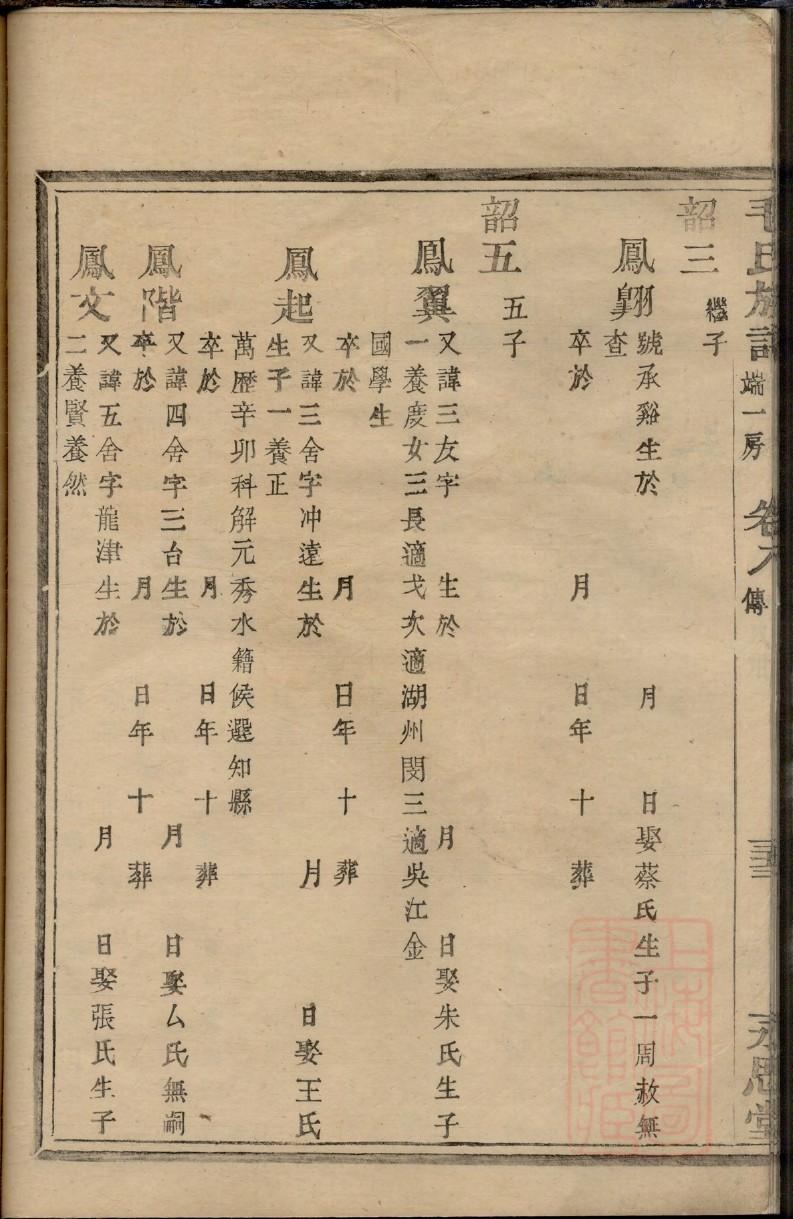 毛氏族譜 端一房 卷六 傳 永思堂
韶三 繼子
鳳翺 號承谿生於 月 日娶蔡氏生子一周赦無
查
卒於 月 日年 十 葬
韶五 五子
鳳翼 又諱三友字 生於 月 日娶朱氏生子
一養度女三長適戈次適湖州閔三適吳江金
國學生
卒於 月 日年 十 葬
鳳起 又諱三舍字冲遠生於 月 日娶王氏
生子一養正
萬歷辛卯科解元秀水籍候選知縣
卒於 月 日年 十 葬
鳳階 又諱四舍字三台生於 月 日娶厶氏無嗣
卒於 月 日年 十 葬
鳳文 又諱五舍字龍津生於 月 日娶張氏生子
二養賢養然